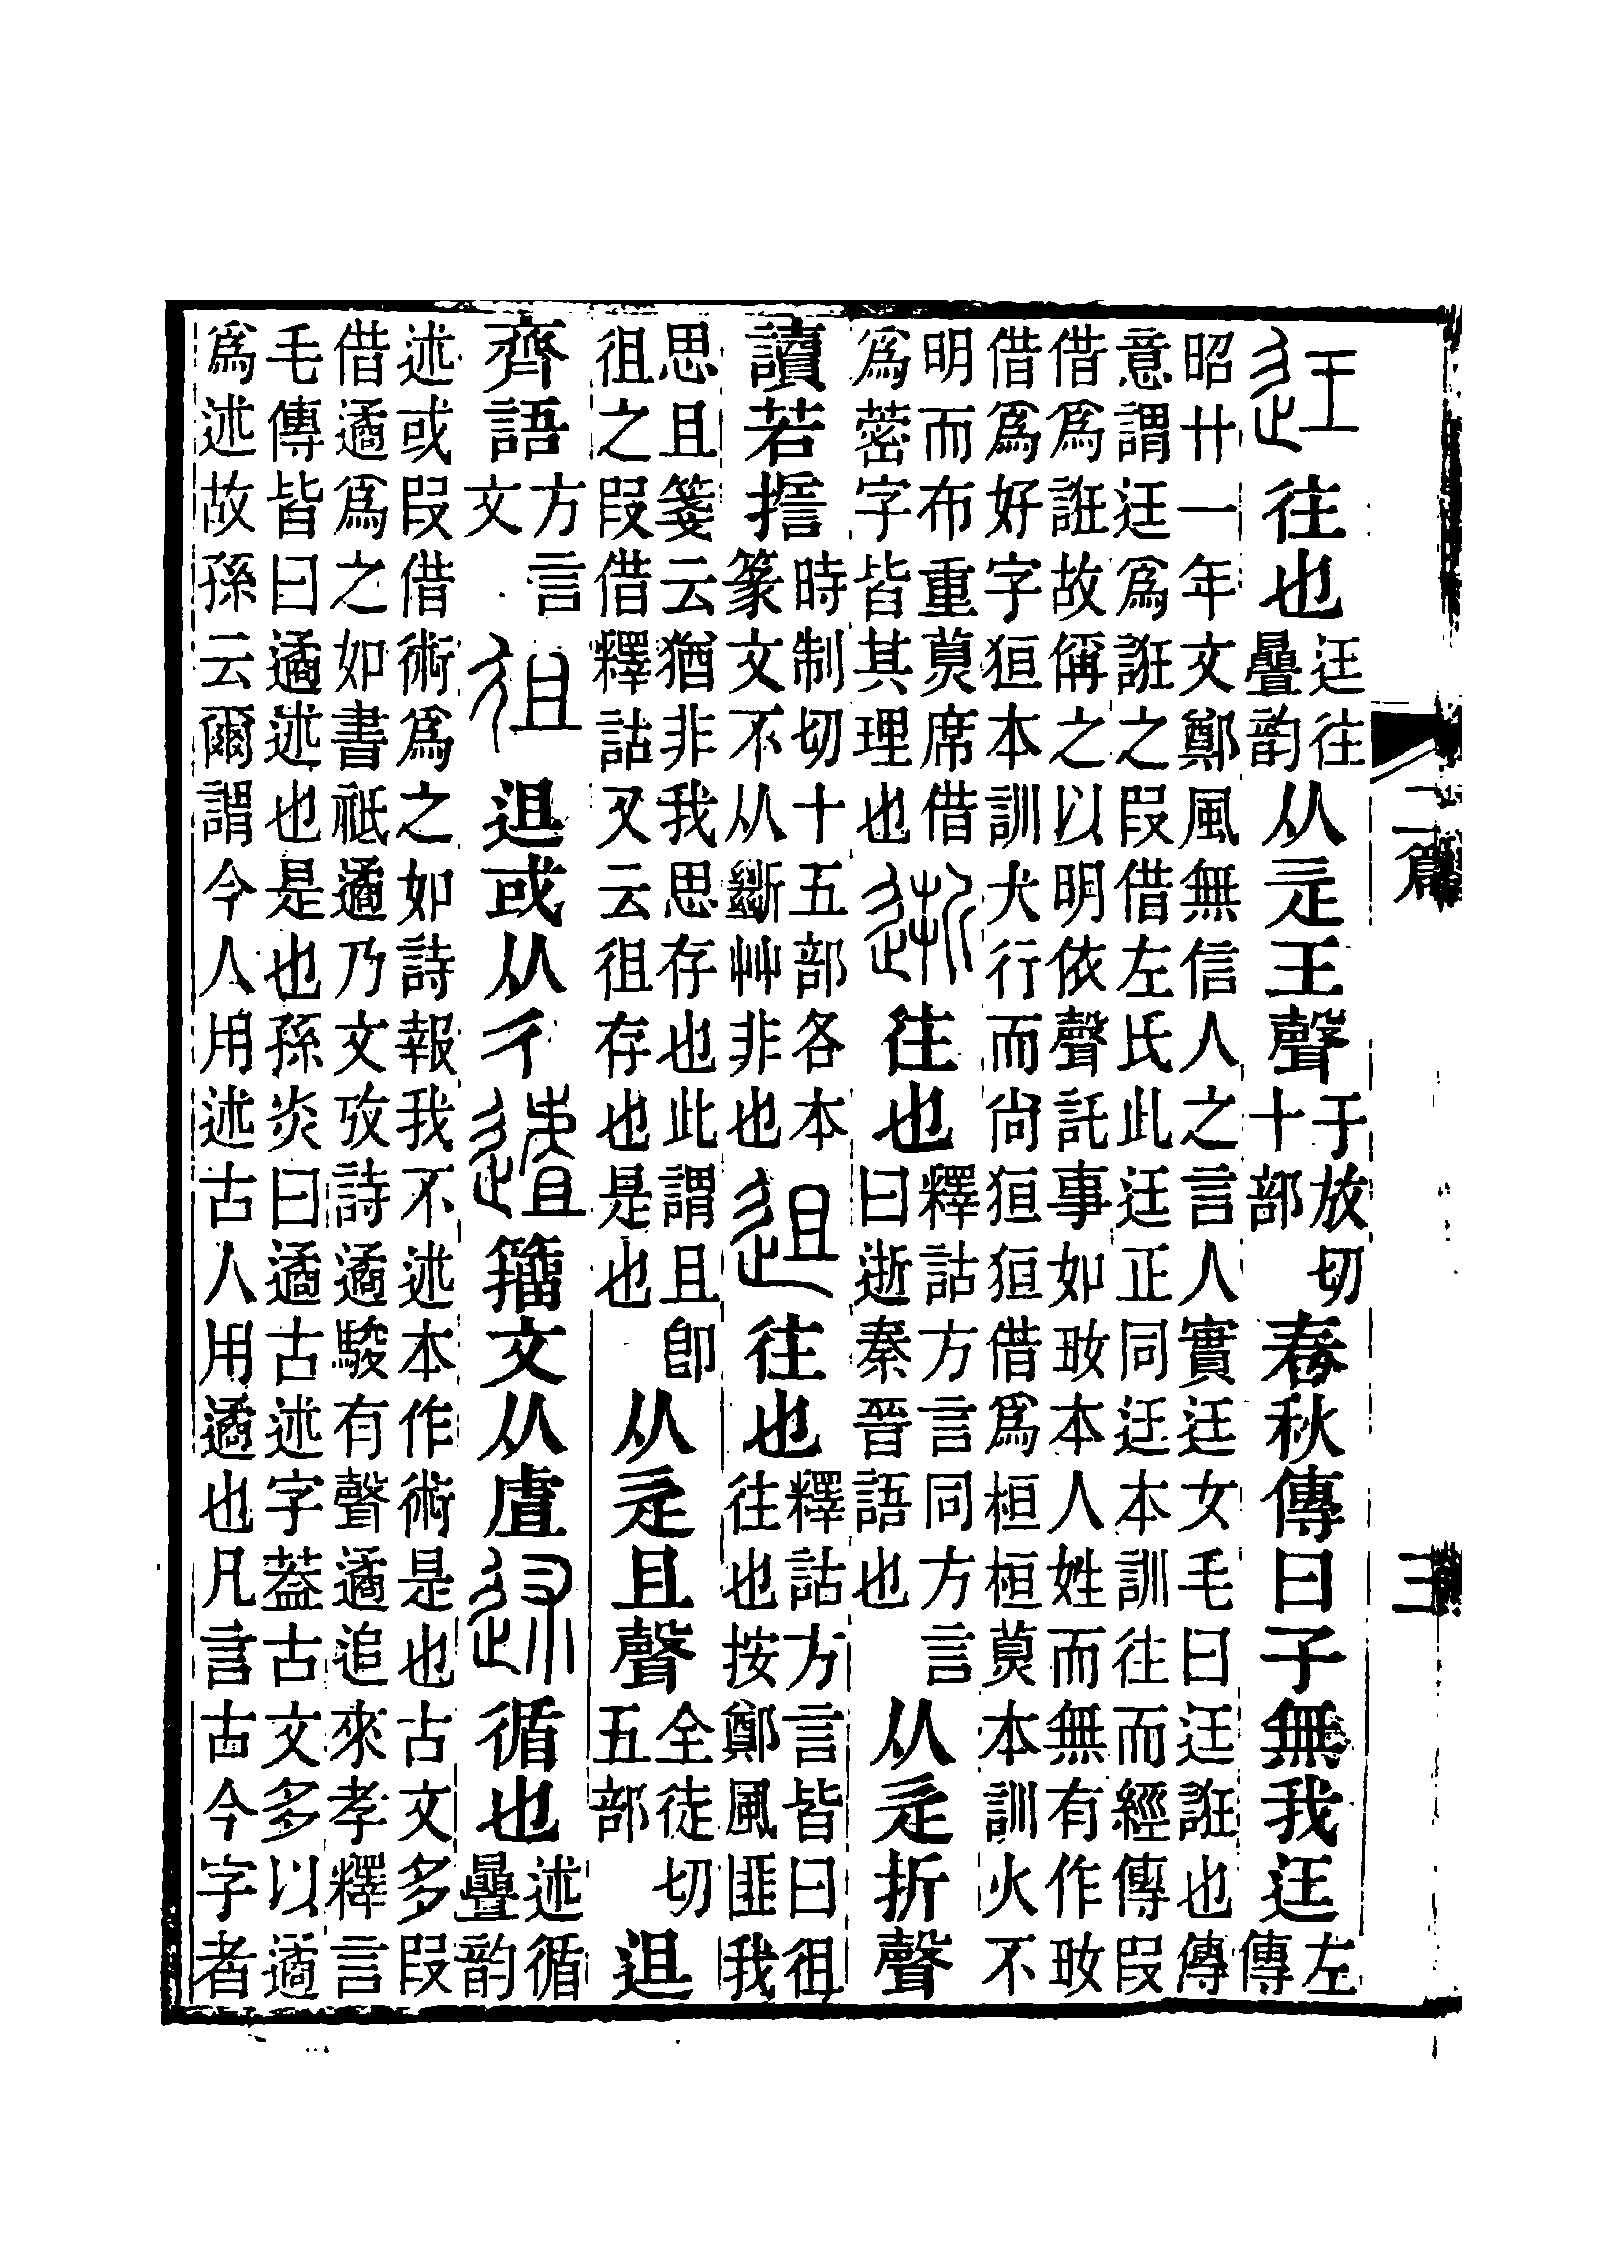 迋往也迋往疊韵从辵王聲于放切十部春秋傳曰子無我迋左傳
昭廿一年文鄭風無信人之言人實迋女毛曰迋誑也傳
意謂迋爲誑之叚借左氏此迋正同迋本訓往而經傳叚
借爲誑故偁之以明依聲託事如𡚽本人姓而無有作𡚽
借爲好字狟本訓犬行而尙狟狟借爲桓桓莫本訓火不
明而布重莫席借
爲蔤字皆其理也
逝往也釋詁方言同方言曰逝秦晉語也从辵折聲
讀若誓時制切十五部各本篆文不从斷艸非也
䢐往也釋詁方言皆曰徂往也按鄭風匪我
思且箋云猶非我思存也此謂且卽
徂之叚借釋詁又云徂存也是也
从辵且聲全徒切五部䢐
齊語方言文徂䢐或从彳遣籒文从虘述循也述循疊韵
述或叚借術爲之如詩報我不述本作術是也古文多叚
借遹爲之如書祗遹乃文攷詩遹駿有聲遹追來孝釋言
毛傳皆曰遹述也是也孫炎曰遹古述字葢古文多以遹
爲述故孫云爾謂今人用述古人用遹也凡言古今字者
二篇
三